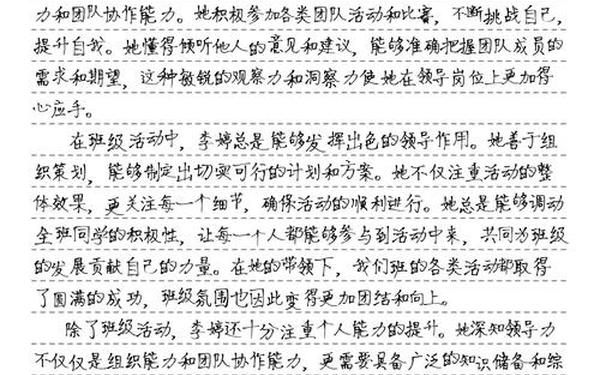 力和团队协作能力。她积极参加各类团队活动和比赛，不断挑战自己，
提升自我。她懂得倾听他人的意见和建议，能够准确把握团队成员的
需求和期望，这种敏锐的观察力和洞察力使她在领导岗位上更加得
心应手。
在班级活动中，李婷总是能够发挥出色的领导作用。她善于组
织策划，能够制定出切实可行的计划和方案。她不仅注重活动的整
体效果，更关注每一个细节，确保活动的顺利进行。她总是能够调动
全班同学的积极性，让每一个人都能够参与到活动中来，共同为班级
的发展贡献自己的力量。在她的带领下，我们班的各类活动都取得
了圆满的成功，班级氛围也因此变得更加团结和向上。
除了班级活动，李婷还十分注重个人能力的提升。她深知领导力
不仅仅是组织能力和团队协作能力，更需要具备广泛的知识储备和综